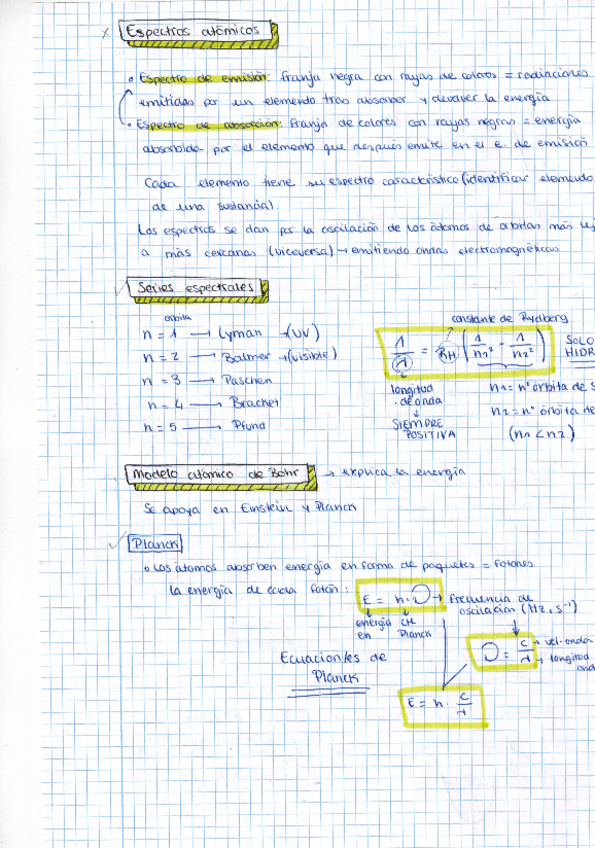 Espectros atómicos
• Espectro de emisión: franja negra con rayas de colores = radiaciones
emitidas por un elemento tras absorber y devolver la energía
• Espectro de absorción: franja de colores con rayas negras = energía
absorbida por el elemento que después emite en el e. de emisión
Cada elemento tiene su espectro característico (identificar elemento
de una sustancia).
Los espectros se dan por la oscilación de los átomos de órbitas más
a más cercanas (viceversa) → emitiendo ondas electromagnéticas
Series espectrales
órbita
n = 1 → Lyman → (UV)
n = 2 → Balmer → (visible)
n = 3 → Paschen
n = 4 → Bracket
n = 5 → Pfund
constante de Rydberg
1/λ = RH (1/n1² - 1/n2²)
SOLO
HIDR
longitud
de onda
↓
SIEMPRE
POSITIVA
n1 = nº órbita de
n2 = nº órbita de
(n1 < n2)
Modelo atómico de Bohr → explica la energía
Se apoya en Einstein y Planck
Planck
• Los átomos absorben energía en forma de paquetes = fotones
La energía de cada fotón:
E = h · υ → frecuencia de
oscilación (Hz, s⁻¹)
energía
en
cte
Planck
υ = c/λ
→ vel. onda
→ longitud
Ecuacion/es de
Planck
E = h · c/λ